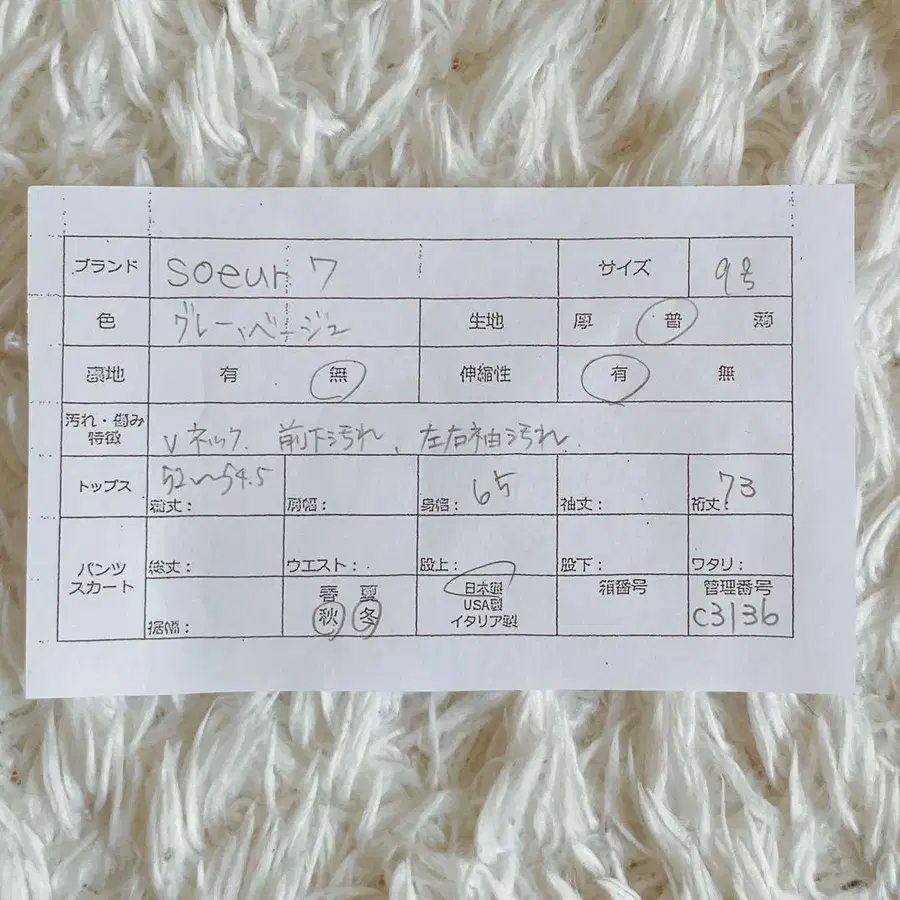 ブランド soeur 7 サイズ 9号
色 グレー、ベージュ 生地 厚 普 薄
裏地 有 無 伸縮性 有 無
汚れ・傷み
特徴 Vネック、前下汚れ、左右袖汚れ、
トップス 着丈: 52〜54.5 肩幅: 身幅: 65 袖丈: 裄丈: 73
パンツ
スカート
総丈: ウエスト: 股上: 股下: ワタリ:
裾幅: 春 夏
秋 冬
日本製
USA製
イタリア製
箱番号 管理番号
C3136